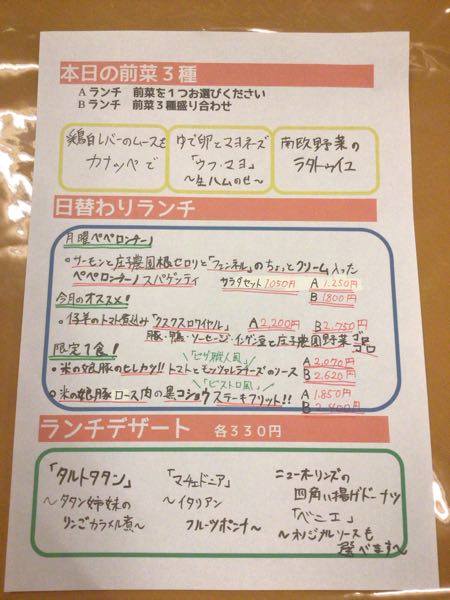 本日の前菜３種
Ａランチ　前菜を１つお選びください
Ｂランチ　前菜３種盛り合わせ
鶏白レバーのムースを
カナッペで
ゆで卵とマヨネーズ
「ウフ・マヨ」
～生ハムのせ～
南欧野菜の
ラタトゥイユ
日替わりランチ
月曜ペペロンチーノ
・サーモンと庄子農園根セロリと「フェンネル」のちょっとクリーム入った
ペペロンチーノスパゲッティ　サラダセット1,050円　A 1,250円
B 1800円
今月のオススメ!
・仔羊のトマト煮込み「クスクスロワイヤル」　A 2,200円　B 2,750円
豚・鴨・ソーセージ・インゲン豆と庄子農園野菜ゴロゴロ
限定1食!　「ピザ職人風」
・米の娘豚のヒレカツ!!トマトとモッツァレラチーズのソース　A 2,070円
B 2,620円
「ビストロ風」
・米の娘豚ロース肉の黒コショウステーキフリット!!　A 1,850円
B 2,400円
ランチデザート　各３３０円
「タルトタタン」
～タタン姉妹の
りんごカラメル煮～
「マチェドニア」
～イタリアン
フルーツポンチ～
ニューオーリンズの
四角い揚げドーナツ
「ベニエ」
～オリジナルソースも
選べます～